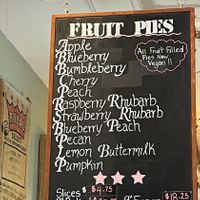 FRUIT PIES
Apple
Blueberry
Bumbleberry
Cherry
Peach
Raspberry Rhubarb
Strawberry Rhubarb
Blueberry Peach
Pecan
Lemon Buttermilk
Pumpkin
All Fruit Filled
Pies Now
Vegan!!
Slices $4.75
$18.25